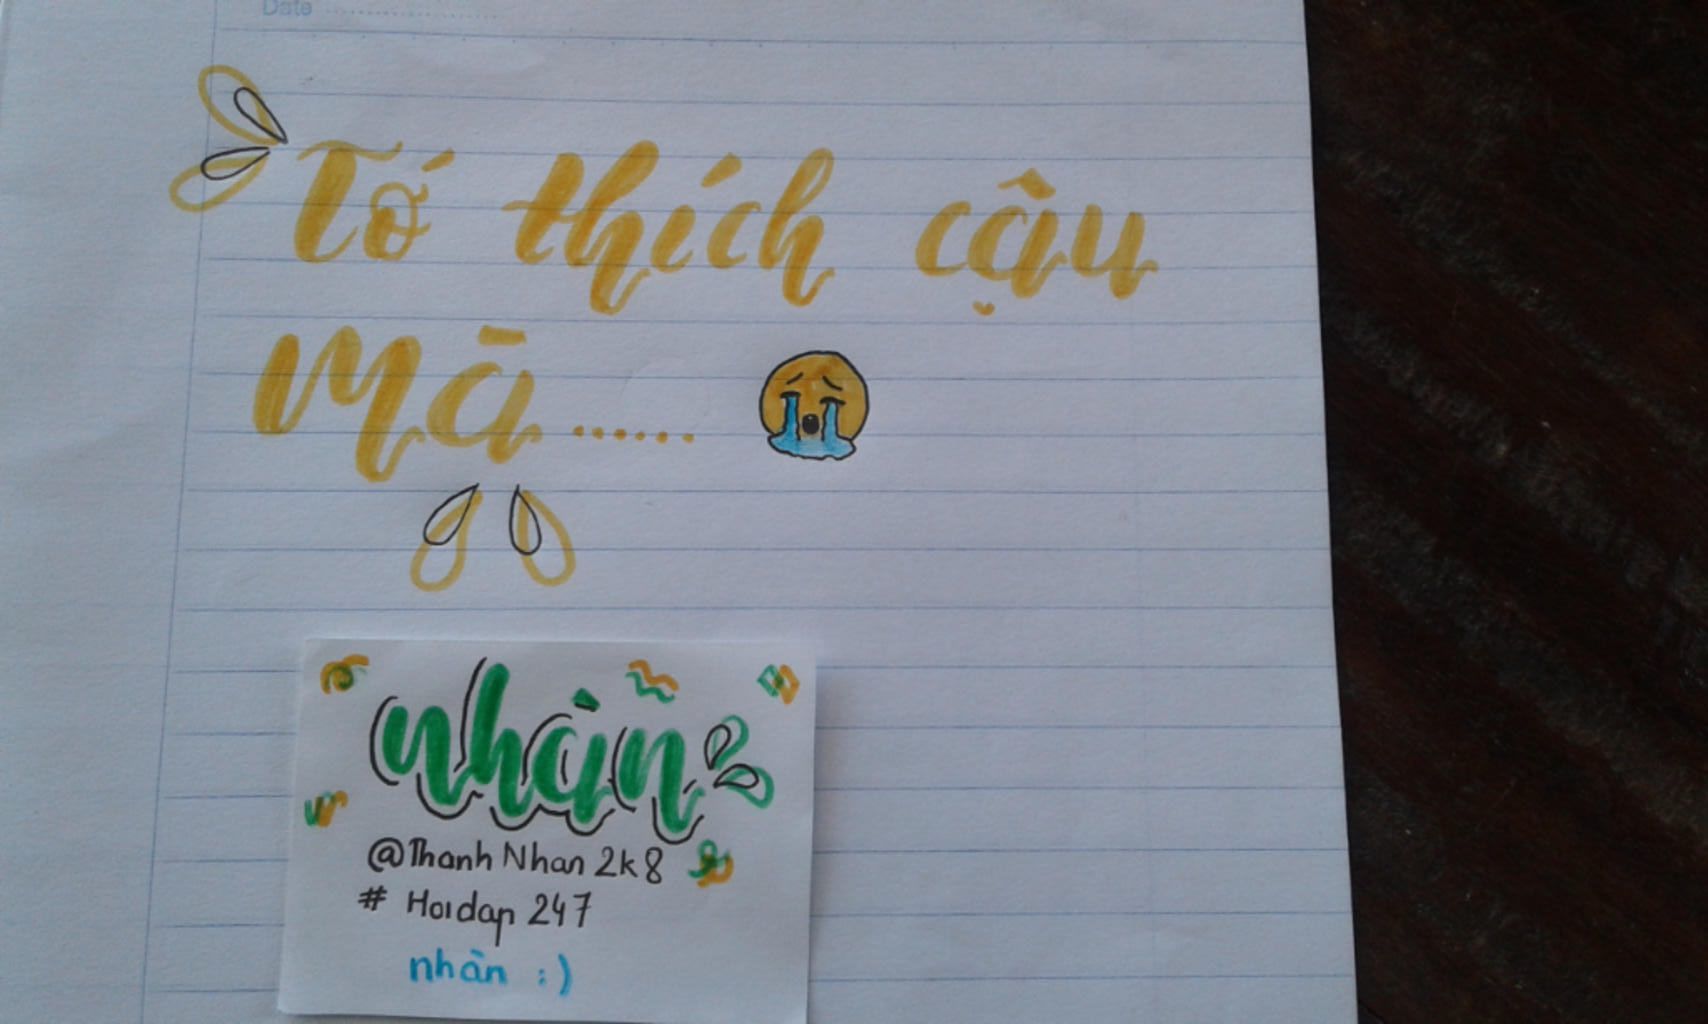 Date ..................
Tớ thích cậu
mà......
nhàn
@Thanh Nhan 2k8
# Hoidap 247
nhàn :)